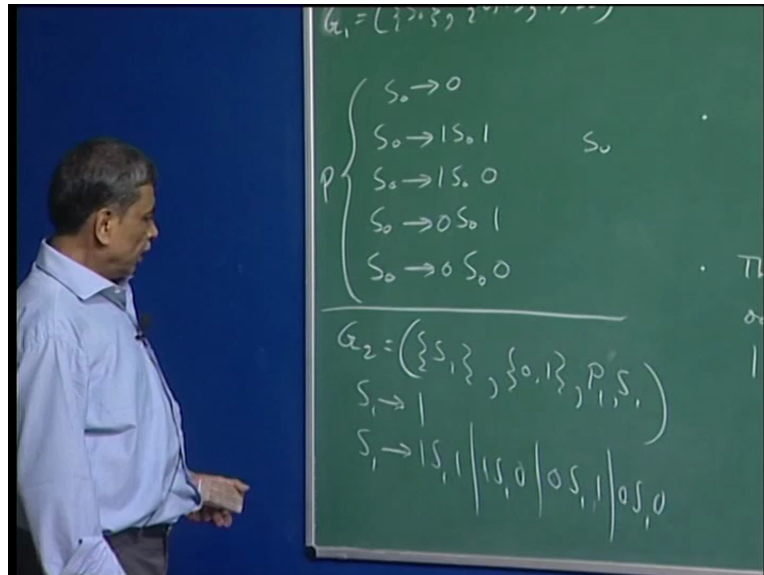 G₁ = ({S₀},
P
S₀ → 0
S₀ → 1S₀1
S₀ → 1S₀0
S₀ → 0S₀1
S₀ → 0S₀0
S₀
G₂ = ({S₁}, {0,1}, P₁, S₁)
S₁ → 1
S₁ → 1S₁1 | 1S₁0 | 0S₁1 | 0S₁0